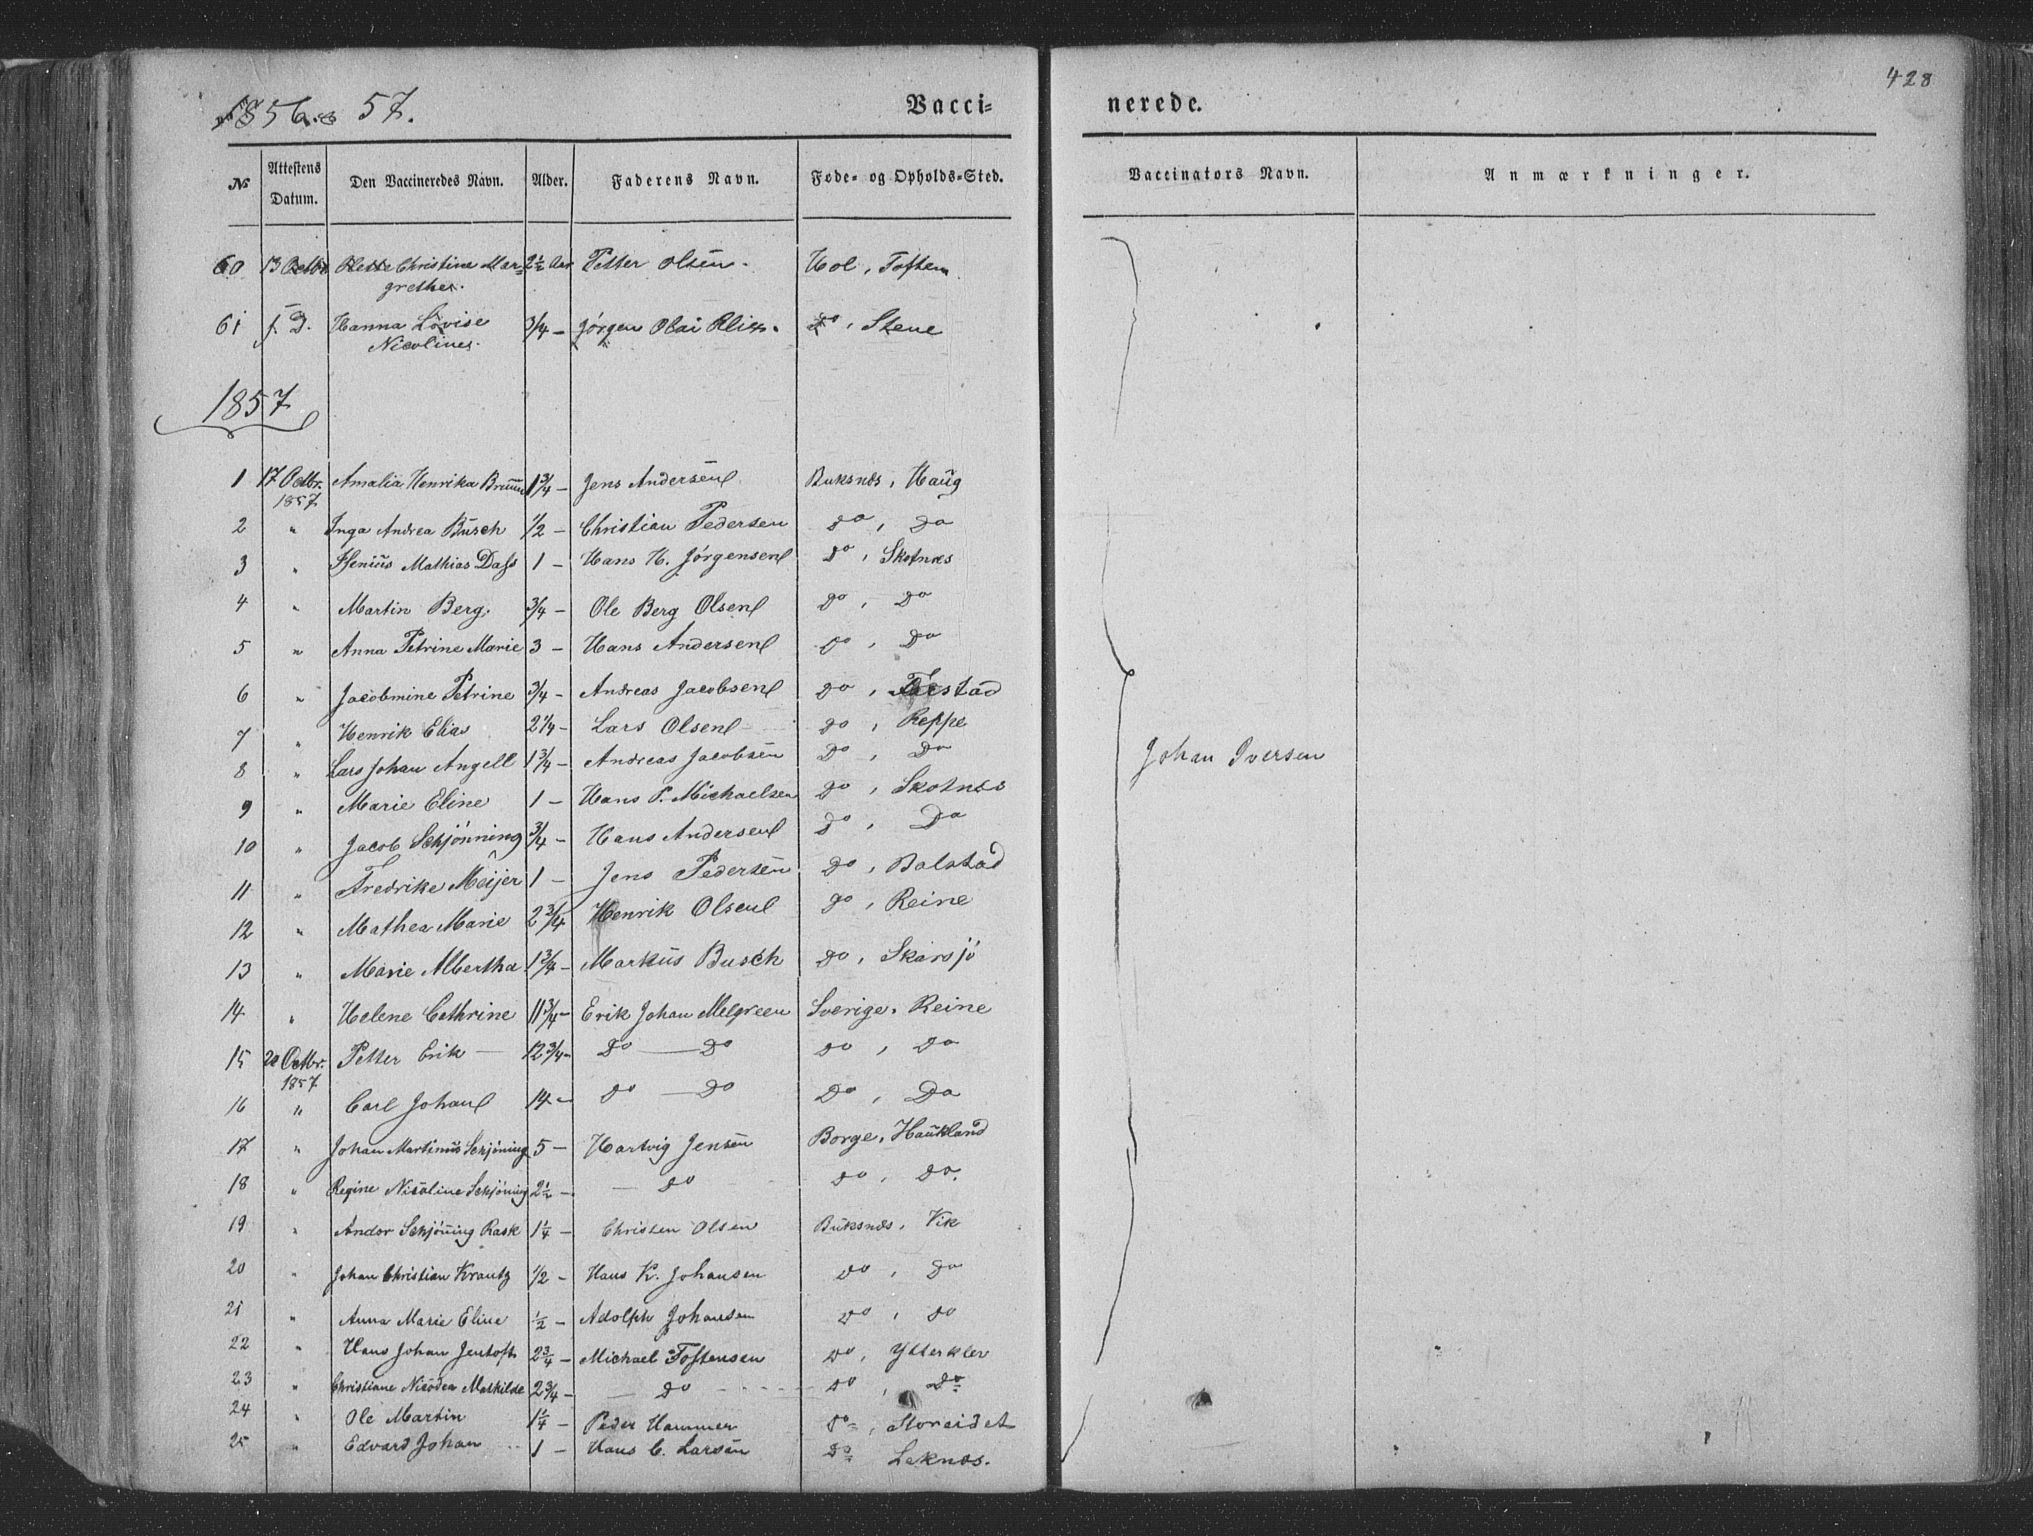 1856 & 57.
Vacci=
nerede.
428
No
Attestens Datum.
Den Vaccineredes Navn.
Alder.
Faderens Navn.
Føde= og Opholds=Sted.
Vaccinators Navn.
Anmærkninger.
60 13 Octbr Christine Mar= 2½ Aar Petter Olsen. Hol, Toften
grethe.
61 s. D. Hanna Lovise 3/4 – Jörgen Olai Do, Stene
Nicoline.
1857
1 17 Octbr. Amalia Henrika Bruun 1 3/4 – Jens Andersen Buksnæs, Haug
1857
2 " Inga Andrea Busch 1/2 – Christian Pedersen Do, Do
3 " Mathias Dass 1 – Hans H. Jörgensen Do, Skotnæs
4 " Martin Berg. 3/4 – Ole Berg Olsen Do, Do
5 " Anna Petrine Marie 3 – Hans Andersen Do, Do
6 " Jacobmine Petrine 3/4 – Andreas Jacobsen Do, Farstad
7 " Henrik Elias 2 1/4 – Lars Olsen Do, Reppe
8 " Lars Johan Angell 1 3/4 – Andreas Jacobsen Do, Do
Johan Iversen
9 " Marie Eline 1 – Hans P. Michaelsen Do, Skotnæs
10 " Jacob Schjönning 3/4 – Hans Andersen Do, Do
11 " Fredrike Meijer 1 – Jens Pedersen Do, Balstad
12 " Mathea Marie 2 3/4 Henrik Olsen Do, Reine
13 " Marie Albertha 1 3/4 – Markus Busch Do, Skarsjö
14 " Helene Cathrine 11 3/4 – Erik Johan Melgreen Sverige, Reine
15 20 Octbr. Petter Erik – 12 3/4 – Do – Do Do, Do
1857
16 " Carl Johan 14 – Do – Do Do, Do
17 " Johan Martinus Schjöning 5 – Hartvig Jensen Borge, Haukland
18 " Regine Nicoline Schjöning 2½ – – Do Do, Do.
19 " Andor Schjöning Rask 1¼ – Christen Olsen Buksnæs, Vik
20 " Johan Christian Krantz 1/2 – Hans K. Johansen Do, Do
21 " Anna Marie Eline ½ – Adolph Johansen Do, Do
22 " Hans Johan Jentoft 2¾ – Michael Toftensen Do, Ytterkler
23 " Christiane Nicodea Mathilde 2 3/4 – – Do – – – Do, Do
24 " Ole Martin 1¼ – Peder Hammer Do, Storeidet
25 " Edvard Johan 1 – Hans C. Larsen Do Leknæs.